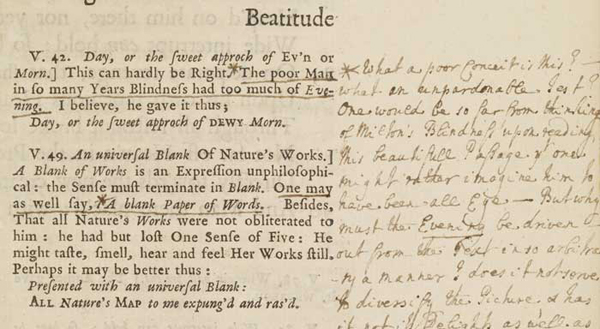 Beatitude
V. 42. Day, or the sweet approch of Ev'n or
Morn.] This can hardly be Right. The poor Man
in so many Years Blindness had too much of Eve-
ning. I believe, he gave it thus;
Day, or the sweet approch of DEWY Morn.
V. 49. An universal Blank Of Nature's Works.]
A Blank of Works is an Expression unphilosophi-
cal: the Sense must terminate in Blank. One may
as well say, A blank Paper of Words. Besides,
That all Nature's Works were not obliterated to
him: he had but lost One Sense of Five: He
might taste, smell, hear and feel Her Works still.
Perhaps it may be better thus:
Presented with an universal Blank:
ALL Nature's MAP to me expung'd and ras'd.
What a poor Conceit is this? —
what an unpardonable Jest?
One would be so far from thinking
of Milton's Blindness upon reading
this beautifull Passage yt one
might rather imagine him to
have been all Eye — But why
must the Evening be driven
out from the Text in so arbitra-
ry a manner? does it not serve
to diversify the Picture & has
it not its Delight as well as